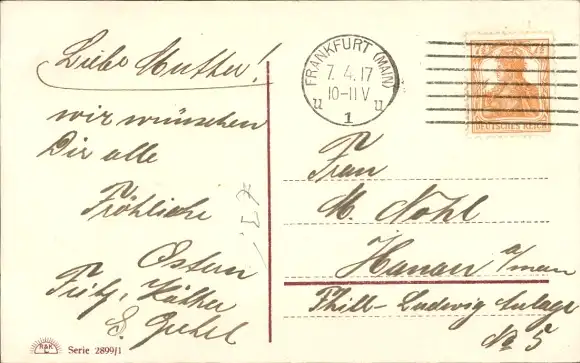 Liebe Mutter!
wir wünschen
Dir alle
Fröhliche
Ostern
Fritz, Käthe
FRANKFURT (MAIN)
7.4.17
10-11V
u u
1
7½ 7½
DEUTSCHES REICH
Frau
M. Nohl
Hanau a/main
Phill- Ludwig Anlage
No 5
R&K
Serie 2899/1